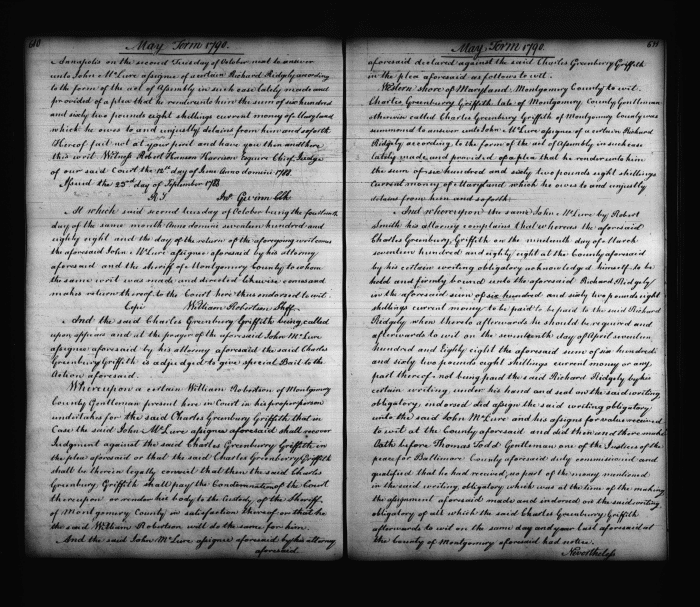 610
May Term 1790.
Annapolis on the second Tuesday of October next to answer
unto John McLure assignee of a certain Richard Ridgely according
to the form of the act of Assembly in such case lately made and
provided of a plea that he render unto him the sum of six hundred
and sixty two pounds eight shillings current money of Maryland
which he owes to and unjustly detains from him and so forth
Hereof fail not at your peril and have you then and there
this writ Witness Robert Hanson Harrison Esquire Chief Judge
of our said Court the 12th day of June Anno domini 1788.
Issued the 23rd day of September 1788
Jno Gwinn Clk
At which said second tuesday of October being the fourteenth
day of the same month Anno domini seventeen hundred and
eighty eight and the day of the return of the aforegoing writ comes
the aforesaid John McLure assignee aforesaid by his attorney
aforesaid and the sheriff of Montgomery County to whom
the same writ was made and directed likewise comes and
makes return thereof to the Court here thus endorsed to wit.
Cepi William Robertson Shff.
And the said Charles Greenbury Griffith being called
upon appears and at the prayer of the aforesaid John McLure
assignee aforesaid by his attorney aforesaid the said Charles
Greenbury Griffith is adjudged to give special Bail to the
Action aforesaid.
Whereupon a certain William Robertson of Montgomery
County Gentleman present here in Court in his proper person
undertakes for the said Charles Greenbury Griffith that in
Case the said John McLure assignee aforesaid shall recover
Judgment against the said Charles Greenberry Griffith in
the plea aforesaid or that the said Charles Greenberry Griffith
shall be therein legally convict that then the said Charles
Greenbury Griffith shall pay the Condemnation of the Court
thereupon or render his body to the Custody of the Sheriff
of Montgomery County in satisfaction thereof or that he
the said William Robertson will do the same for him
And the said John McLure assignee aforesaid by his attorney
aforesaid
611
May Term 1790
aforesaid declared against the said Charles Greenbury Griffith
in the plea aforesaid as follows to wit.
Western shore of Maryland Montgomery County to wit.
Charles Greenbury Griffith late of Montgomery County Gentleman
otherwise called Charles Greenbury Griffith of Montgomery County was
summoned to answer unto John McLure assignee of a certain Richard
Ridgely according to the form of the act of Assembly in such case
lately made and provided of a plea that he render unto him
the sum of six hundred and sixty two pounds eight shillings
current money of Maryland which he owes to and unjustly
detains from him and so forth.
And whereupon the same John McLure by Robert
Smith his attorney complains that whereas the aforesaid
Charles Greenbury Griffith on the nineteenth day of March
seventeen hundred and eighty eight at the County aforesaid
by his certain writing obligatory acknowledged himself to be
held and firmly bound unto the aforesaid Richard Ridgely
in the aforesaid sum of six hundred and sixty two pounds eight
shillings current money to be paid to the said Richard
Ridgely when thereto afterwards he should be required and
afterwards to wit on the seventeenth day of April seventeen
hundred and Eighty eight the aforesaid sum of six hundred
and sixty two pounds eight shillings current money or any
part thereof not being paid the said Richard Ridgely by his
certain writing under his hand and seal on the said writing
obligatory indorsed did assign the said writing obligatory
unto the said John McLure and his assigns for value received
to wit at the County aforesaid and did then and there make
Oath before Thomas Todd Gentleman one of the Justices of the
peace for Baltimore County aforesaid duly commissioned and
qualified that he had received no part of the money mentioned
in the said writing obligatory which was at the time of the making
the assignment aforesaid made and indorsed on the said writing
obligatory of all which the said Charles Greenbury Griffith
afterwards to wit on the same day and year last aforesaid at
the County of Montgomery aforesaid had notice.
Nevertheless